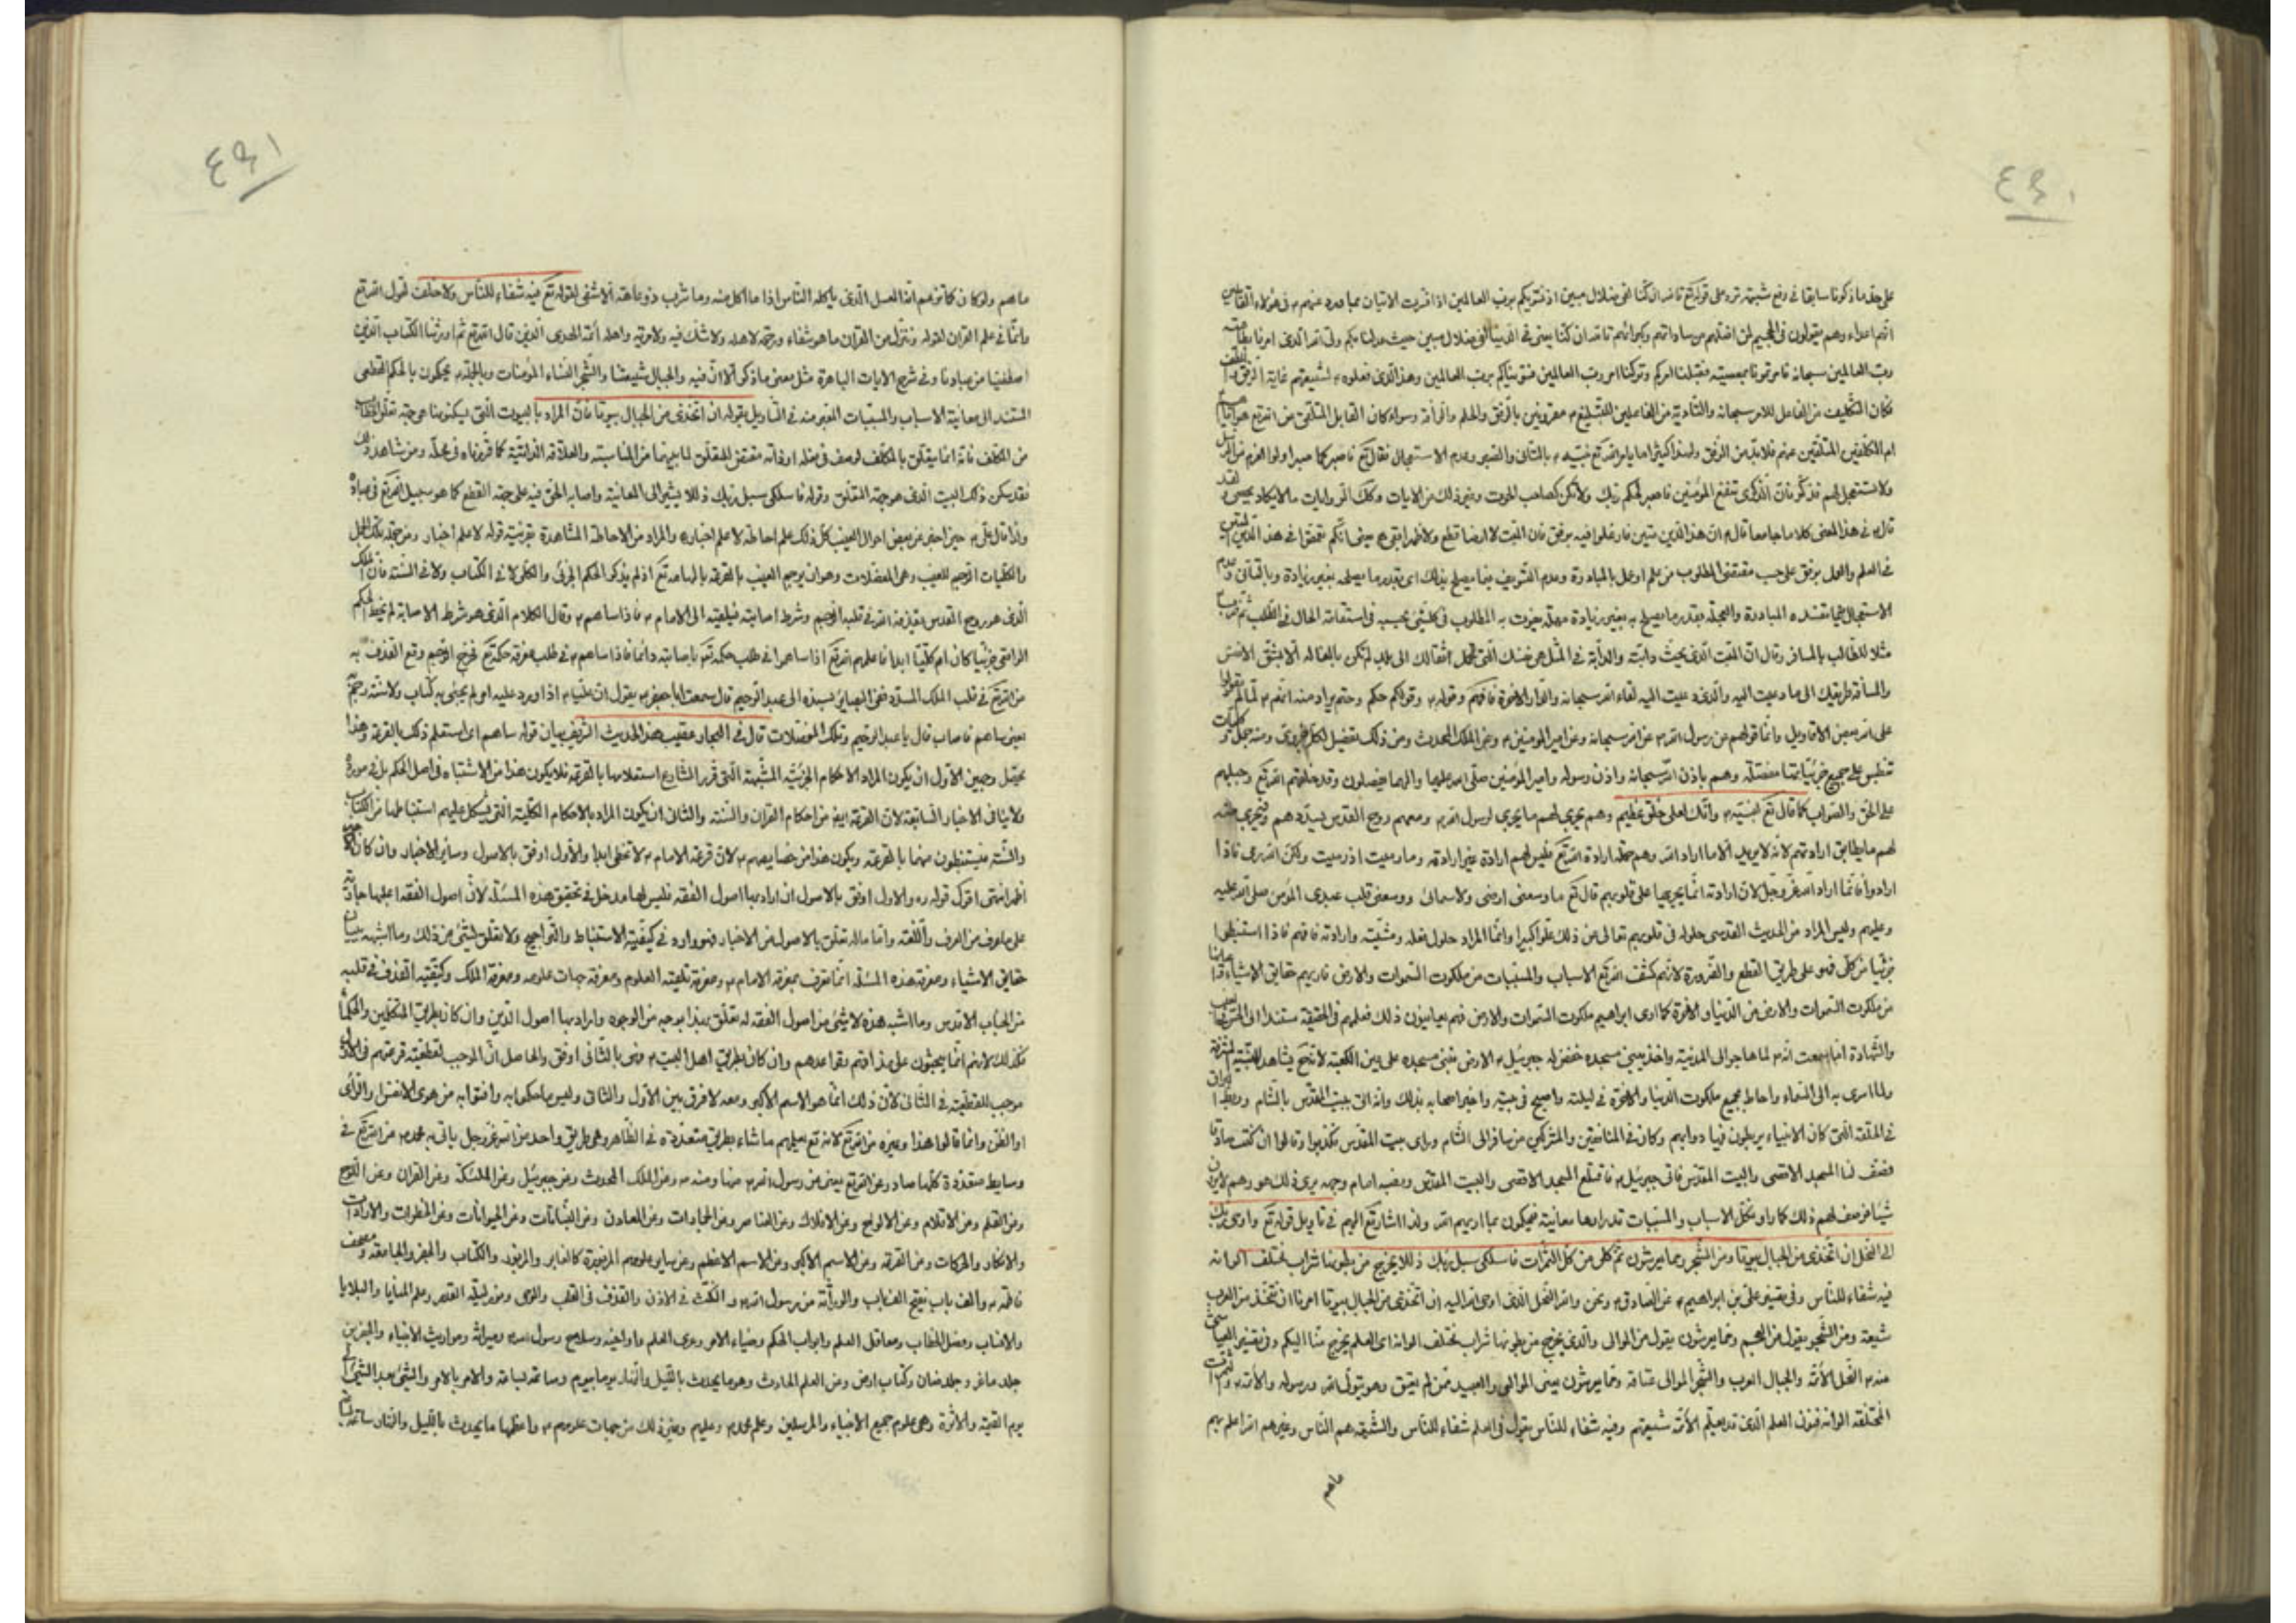 ٤٩٠
على حد ما ذكرنا سابقا في دفع شبهة ترد على قوله تع تالله ان كنا لفي ضلال مبين اذ نسويكم برب العالمين
انهم اعداء وهم يقولون في الجحيم لمن اضلهم من ساداتهم وكبرائهم تالله ان كنا يعني في الدنيا لفي ضلال مبين حيث عدلناكم
رب العالمين سبحانه فقبلنا امركم وتركنا امر رب العالمين فسويناكم برب العالمين وهذا الذي فعلوه
فكان التكليف من الفاعل للامر سبحانه والتأدية من الفاعلين للتبليغ مقرونين بالرفق والحلم
ام المكلفين المتلقين عنهم فلابد من الرفق ولهذا كثيرا ما يامر الله تع نبيه بالتأني والصبر وعدم الاستعجال فقال تع فاصبر كما صبر اولوا العزم من الرسل
ولا تستعجل لهم فذكر فان الذكرى تنفع المؤمنين فاصبر لحكم ربك ولا تكن كصاحب الحوت وغير ذلك من الايات وكذلك الروايات
قال في هذا المعنى كلاما جامعا قال ان هذا الدين متين فاوغلوا فيه برفق فان المنبت لا ارضا قطع ولا ظهرا ابقى
في العلم والعمل برفق على حسب مقتضى المطلوب من علم او عمل بالمبادرة وعدم التسويف
الاستعجال
مثلا للطالب بالمسافر وقال ان المنبت الذي يحث دابته والدابة في المثل هي نفسك التي تحمل اثقالك الى بلد لم تكن بالغه الا بشق الانفس
والمسافة طريقك الى ما دعيت اليه والذي دعيت اليه لقاء الله سبحانه والدار الاخرة فافهم وقوله وقولكم حكم وحتم يراد منه انهم
على الله بعض الاقاويل وانما قولهم عن رسول الله عن الله سبحانه وعن امير المؤمنين وعن الملك المحدث ومن ذلك تفصيل
تنطبق على جميع جزئياتها مفصلة وهم باذن الله سبحانه واذن رسوله وامير المؤمنين صلى الله عليهما والهما يفصلون وقد خلقهم الله تع وجبلهم
على الحق والصواب كما قال تع لنبيه وانك لعلى خلق عظيم وهم يجري لهم ما يجري لرسول الله ومعهم روح القدس يسددهم
لهم ما يطابق ارادتهم لانه لا يريد الا ما اراد الله وهم محل ارادة الله تع فليس لهم ارادة غير ارادته وما رميت اذ رميت ولكن الله رمى فاذا
ارادوا فانما اراد الله عز وجل لان ارادته انما يجريها على قلوبهم قال تع ما وسعني ارضي ولا سمائي ووسعني قلب عبدي المؤمن صلى الله عليه
وعليهم وليس المراد من الحديث القدسي حلوله في قلوبهم تعالى عن ذلك علوا كبيرا وانما المراد حلول فعله ومشيته وارادته فافهم فاذا استنبطوا
جزئيا من كلي فهو على طريق القطع والضرورة لانهم كشف الله تع الاسباب والمسببات من ملكوت السموات والارض فاريهم حقايق الاشياء
من ملكوت السموات والارض من الدنيا والاخرة كما ارى ابراهيم ملكوت السموات والارض فهم يعاينون ذلك فعلمهم في الحقيقة مستند الى
والشهادة اما سمعت انه لما هاجر الى المدينة واخذ يبني مسجده خفض له جبرئيل الارض فبنى مسجده على عين الكعبة
ولما اسري به الى السماء واحاط بجميع ملكوت الدنيا والاخرة في ليلته واصبح في بيته واخبر اصحابه بذلك وانه اتى بيت المقدس بالشام
في الحلقة التي كان الانبياء يربطون فيها دوابهم وكان في المنافقين والمشركين من سافر الى الشام وراى بيت المقدس فكذبوا وقالوا ان كنت صادقا
فصف لنا المسجد الاقصى والبيت المقدس فاتى جبرئيل فاقتلع المسجد الاقصى والبيت المقدس ونصبه امام وجهه يرى ذلك هو وهم لا يرون
شيئا فوصف لهم ذلك كما راه وكل الاسباب والمسببات قد راوها معاينة فيحكون بما اريهم الله ولذا اشار تع اليهم في تاويل قوله تع واوحى ربك
الى النحل ان اتخذي من الجبال بيوتا ومن الشجر ومما يعرشون ثم كلي من كل الثمرات فاسلكي سبل ربك ذللا يخرج من بطونها شراب مختلف الوانه
فيه شفاء للناس وفي تفسير علي بن ابراهيم عن الصادق نحن والله النحل الذي اوحى الله اليه ان اتخذي من الجبال بيوتا امرنا ان نتخذ من العرب
شيعة ومن الشجر يقول من العجم ومما يعرشون يقول من الموالي والذي يخرج من بطونها شراب مختلف الوانه اى العلم يخرج منا اليكم وفي تفسير العياشي
عنه النحل الائمة والجبال العرب والشجر الموالي عتاقه ومما يعرشون يعني الموالي والعبيد ممن لم يعتق وهو يتولى الله ورسوله والائمة
المختلفة الوانه فنون العلم الذي قد يعلم الائمة شيعتهم وفيه شفاء للناس يقول في العلم شفاء للناس والشيعة هم الناس وغيرهم الله اعلم بهم
ما هم
٤٩١
ما هم ولو كان كما تزعم انه العسل الذي ياكله الناس اذا ما اكل منه وما شرب ذو عاهة الا شفى لقوله تع فيه شفاء للناس ولا خلف لقول الله تع
وانما في علم القران لقوله وننزل من القران ما هو شفاء ورحمة لاهله ولا شك فيه ولا مرية واهله ائمة الهدى الذين قال الله تع ثم اورثنا الكتاب الذين
اصطفينا من عبادنا وفي شرح الايات الباهرة مثل معنى ما ذكر الا ان فيه والجبال شيعتنا والشجر النساء المؤمنات وبالجملة يحكمون بالحكم القطعي
المستند الى معاينة الاسباب والمسببات المعبر عنه في التاويل بقوله ان اتخذي من الجبال بيوتا فان المراد بالبيوت التي يسكنونها هي جهة تعلق الخطاب
من المكلف فانه انما يتعلق بالمكلف لوصف في فعله او ذاته مقتض للتعلق لما بينهما من المناسبة والعلاقة الذاتية كما قررناه في محله ومن شاهد ذلك
فقد سكن ذلك البيت الذي هو جهة التعلق وقوله فاسلكي سبل ربك ذللا يشير الى المعاينة واصابة الحق فيه على جهة القطع كما هو سبيل الله تع في عباده
ولذا قال علي حين اخبر عن بعض احوال الغيب كل ذلك علم احاطة لا علم اخبار والمراد من الاحاطة المشاهدة بقرينة قوله لا علم اخبار ومن جملة تلك الجمل
والكليات الرجم للغيب وهي المعضلات وهو ان يرجم الغيب بالقرعة بالهامه تع اذا لم يذكر الحكم الجزئي والكلي لا في الكتاب ولا في السنة فان الملك
الذي هو روح القدس يقذفه الله في قلب الرجم وشرط اصابته فيلقيه الى الامام فاذا ساهم وقال الكلام الذي هو شرط الاصابة لم يخط الحكم
الواقعي جزئيا كان ام كليا ابدا فاعلمهم الله تع اذا ساهموا في طلب حكمه تع باصابته دائما فاذا ساهم في طلب معرفة حكمه تع فخرج الرجم وقع القذف به
من الله تع في قلب الملك المسدد ففي البصائر بسنده الى عبد الرحيم قال سمعت ابا جعفر يقول ان عليا اذا ورد عليه امر لم يجئ به كتاب ولا سنة رجم
يعني ساهم فاصاب قال يا عبد الرحيم وتلك المعضلات قال في البحار عقيب هذا الحديث الشريف بيان قوله ساهم اى استعلم ذلك بالقرعة وهذا
يحتمل وجهين الاول ان يكون المراد الاحكام الجزئية المشتبهة التي قرر الشارع استعلامها بالقرعة فلا يكون هذا من الاشتباه في اصل الحكم بل في مورده
ولا ينافي الاخبار السابقة لان القرعة ايض من احكام القران والسنة والثاني ان يكون المراد بالاحكام الكلية التي يشكل عليهم استنباطها من الكتاب
والسنة فيستنبطون منهما بالقرعة ويكون هذا من خصايصهم لان قرعة الامام لا تخطى ابدا والاول اوفق بالاصول وسائر الاخبار وان كان
اظهر انتهى اقول قوله ره والاول اوفق بالاصول ان اراد بها اصول الفقه فليس لها مدخل في تحقيق هذه المسئلة لان اصول الفقه اغلبها جارية
على ما عرف من العرف واللغة وانما ماله تعلق بالاصول من الاخبار فهو وارد في كيفية الاستنباط والتراجيح ولا تعلق لشئ من ذلك وما اشبهه
حقايق الاشياء ومعرفة هذه المسئلة انما تعرف بمعرفة الامام ومعرفة تلقيه العلوم ومعرفة جهات علومه ومعرفة الملك وكيفية القذف في قلبه
من الجناب الاقدس وما اشبه هذه لا شئ من اصول الفقه له تعلق بهذا بوجه من الوجوه وان اراد بها اصول الدين وان كان بطريق المتكلمين والحكماء
فكذلك لانهم انما يبحثون على مذاقهم بقواعدهم وان كان بطريق اهل البيت فهي بالثاني اوفق والحاصل ان الموجب لقطعية قرعتهم في الاول
موجب للقطعية في الثاني لان ذلك انما هو الاسم الاكبر ومعه لا فرق بين الاول والثاني وليس ما حكموا به وافتوا به من هوى الانفس والراى
او الظن وانما قالوا هذا وغيره من الله تع لانه تع يعلمهم ما شاء بطريق متعددة في الظاهر وهي طريق واحد من الله عز وجل
وسايط متعددة كلها صادر عن الله تع يعني من رسول الله منها ومنه وعن الملك المحدث وعن جبرئيل وعن الملئكة وعن القران وعن الروح
ومن القلم ومن الاقلام وعن الالواح وعن الافلاك وعن العناصر وعن الجمادات وعن المعادن وعن النباتات وعن الحيوانات وعن الخطرات والارادات
والافكار والحركات ومن القرعة وعن الاسم الاكبر وعن الاسم الاعظم وعن سائر علومهم المزبورة كالغابر والمزبور والكتاب والجفر والجامعة ومصحف
فاطمة والف باب يفتح الف باب والوراثة من رسول الله والنكت في الاذن والقذف في القلب والوحى ومن ليلة القدر وعلم المنايا والبلايا
والانساب وفصل الخطاب ومعاقل العلم وابواب الحكم وضياء الامر وعرى العلم واواخيه وسلاح رسول الله وميراثه ومواريث الانبياء والجفرين
جلد ماعز وجلد ضان وكتاب ارض ومن العلم الحادث وهو ما يحدث بالليل والنهار يوما بيوم وساعة بساعة والامر بالامر والشئ بعد الشئ الى
يوم القيمة والاثرة وهي علوم جميع الانبياء والمرسلين وعلم محمد وعليهم وغير ذلك من جهات علومهم واعظمها ما يحدث بالليل والنهار ساعة بساعة